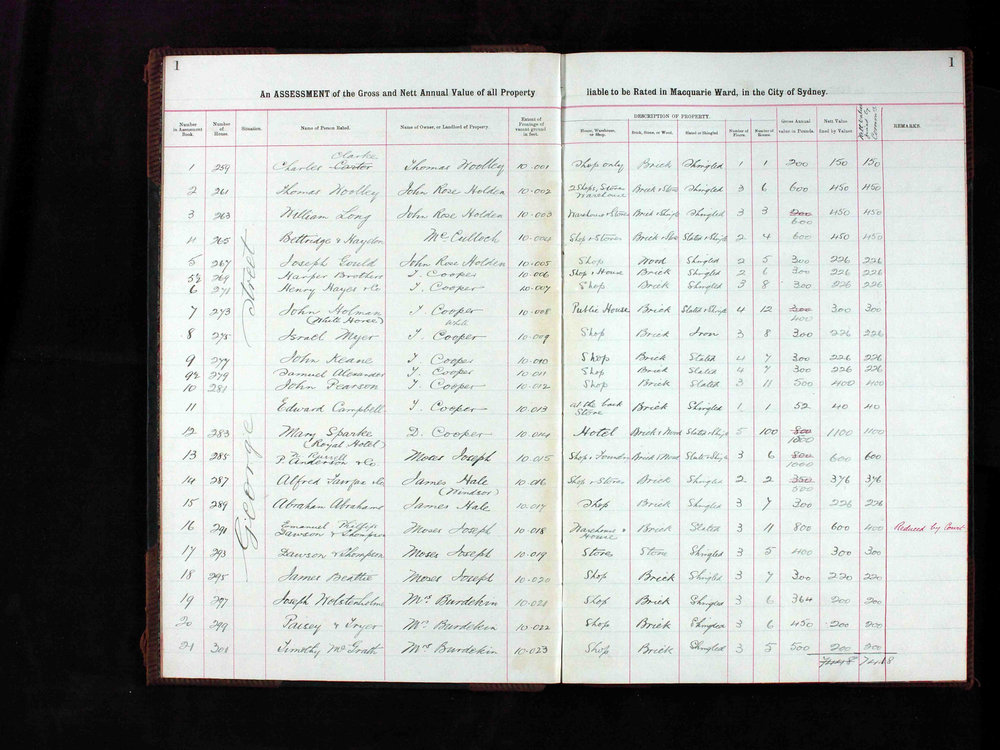 1
1
An ASSESSMENT of the Gross and Nett Annual Value of all Property liable to be Rated in Macquarie Ward, in the City of Sydney.
DESCRIPTION OF PROPERTY.
Number in Assessment Book. Number of House. Situation. Name of Person Rated. Name of Owner, or Landlord of Property. Extent of Frontage of vacant ground in feet. House, Warehouse, or Shop. Brick, Stone, or Wood. Slated or Shingled Number of Floors. Number of Rooms. Gross Annual value in Pounds. Nett Value fixed by Valuer REMARKS.
George Street
Clarke
1 259 Charles Carter Thomas Woolley 10-001 Shop only Brick Shingled 1 1 200 150 150
2 261 Thomas Woolley John Rose Holden 10-002 2 Shops, Stores Warehouse Brick & Stone Shingled 3 6 600 450 450
3 263 William Long John Rose Holden 10-003 Warehouse & Stores Brick Shingled 3 3 600 450 450
4 265 Bettridge & Haydon McCulloch 10-004 Shop & Stores Brick Slated & Shingl 2 4 600 450 450
5 267 Joseph Gould John Rose Holden 10-005 Shop Wood Shingled 2 5 300 226 226
5½ 269 Harper Brothers T. Cooper 10-006 Shop & House Brick Shingled 2 6 300 226 226
6 271 Henry Hayes & Co T. Cooper 10-007 Shop Brick Shingled 3 8 300 226 226
7 273 John Holman T. Cooper 10-008 Public House Brick Slated & Shingl 4 12 300 300 300
(White Horse) White 400
8 275 Israel Myer T. Cooper 10-009 Shop Brick Iron 3 8 300 226 226
9 277 John Keane T. Cooper 10-010 Shop Brick Slated 4 7 300 226 226
9½ 279 Samuel Alexander T. Cooper 10-011 Shop Brick Slated 4 7 300 226 226
10 281 John Pearson T. Cooper 10-012 Shop Brick Slated 3 11 500 400 400
11 Edward Campbell T. Cooper 10-013 at the back Store Brick Shingled 1 1 52 40 40
12 283 Mary Sparke D. Cooper 10-014 Hotel Brick & Wood Slated & Shingl 5 100 800 1100 1100
(Royal Hotel)
13 285 P. Russell Moses Joseph 10-015 Shop & Foundry Brick & Wood Slate & Shingl 3 6 800 600 600
P. Anderson & Co. 1000
14 287 Alfred Fairfax & Co James Hale 10-016 Shop & Stores Brick Shingled 2 2 350 376 376
(Windsor) 500
15 289 Abraham Abrahams James Hale 10-017 Shop Brick Shingled 3 7 300 226 226
16 291 Emanuel Phillips Moses Joseph 10-018 Warehouse & House Brick Slated 3 11 800 600 400 Reduced by Court
Dawson & Thompson
17 293 Dawson & Thompson Moses Joseph 10-019 Stores Stone Shingled 3 5 400 300 300
18 295 James Beattie Moses Joseph 10-020 Shop Brick Shingled 3 7 300 220 220
19 297 Joseph Wolstenholme Mrs Burdekin 10-021 Shop Brick Shingled 3 6 364 200 200
20 299 Paisey & Fryer Mrs Burdekin 10-022 Shop Brick Shingled 3 6 450 200 200
21 301 Timothy McGrath Mrs Burdekin 10-023 Shop Brick Shingled 3 5 500 200 200